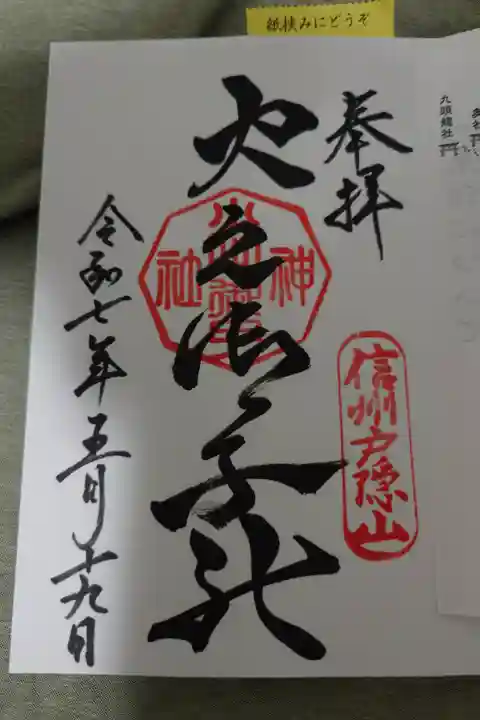 紙挟みにどうぞ
九頭龍社
奉拝
信州戸隠山
火之御子社
神
社
令和七年五月十九日